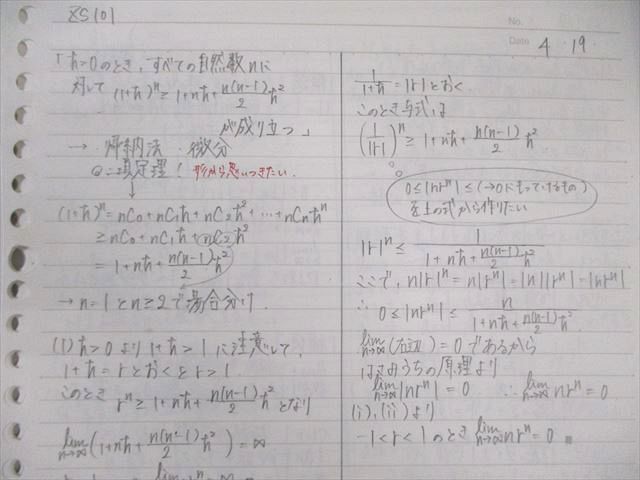 ZS101
「h>0のとき、すべての自然数nに
対して (1+h)^n ≥ 1+nh+\frac{n(n-1)}{2}h^2
が成り立つ」
→ 帰納法・微分
◎二項定理! 形から思いつきたい.
↓
(1+h)^n = nC0+nC1h+nC2h^2+…+nCnh^n
≥ nC0+nC1h+nC2h^2
= 1+nh+\frac{n(n-1)}{2}h^2
→ n=1とn≥2で場合分け.
(1) h>0より 1+h>1に注意して、
1+h=rとおくとr>1.
このとき r^n ≥ 1+nh+\frac{n(n-1)}{2}h^2 となり
\lim_{n→∞}(1+nh+\frac{n(n-1)}{2}h^2)=∞
No.
Date 4 ・19
\frac{1}{1+h}=|r|とおく
このとき与式は
(\frac{1}{|r|})^n ≥ 1+nh+\frac{n(n-1)}{2}h^2
0≤|nr^n|≤(→0にもっていけるもの)
を上の式から作りたい
|r|^n ≤ \frac{1}{1+nh+\frac{n(n-1)}{2}h^2}
ここで、n|r|^n=n|r^n|=|n||r^n|=|nr^n|
∴ 0≤|nr^n|≤\frac{n}{1+nh+\frac{n(n-1)}{2}h^2}
\lim_{n→∞}(右辺)=0であるから
はさみうちの原理より
\lim_{n→∞}|nr^n|=0 ∴ \lim_{n→∞}nr^n=0
(i),(ii)より
-1<r<1のとき \lim_{n→∞}nr^n=0 ■